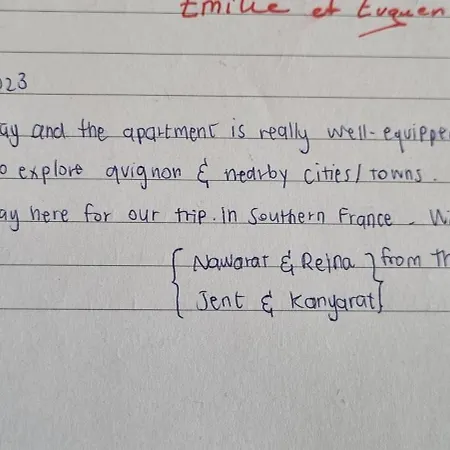 Emilie et Euguen
023
ay and the apartment is really well-equippe
o explore avignon & nearby cities/towns.
ay here for our trip in Southern France. Wi
{ Nawarat & Rejna } from th
{ Jent & Kanyarat }